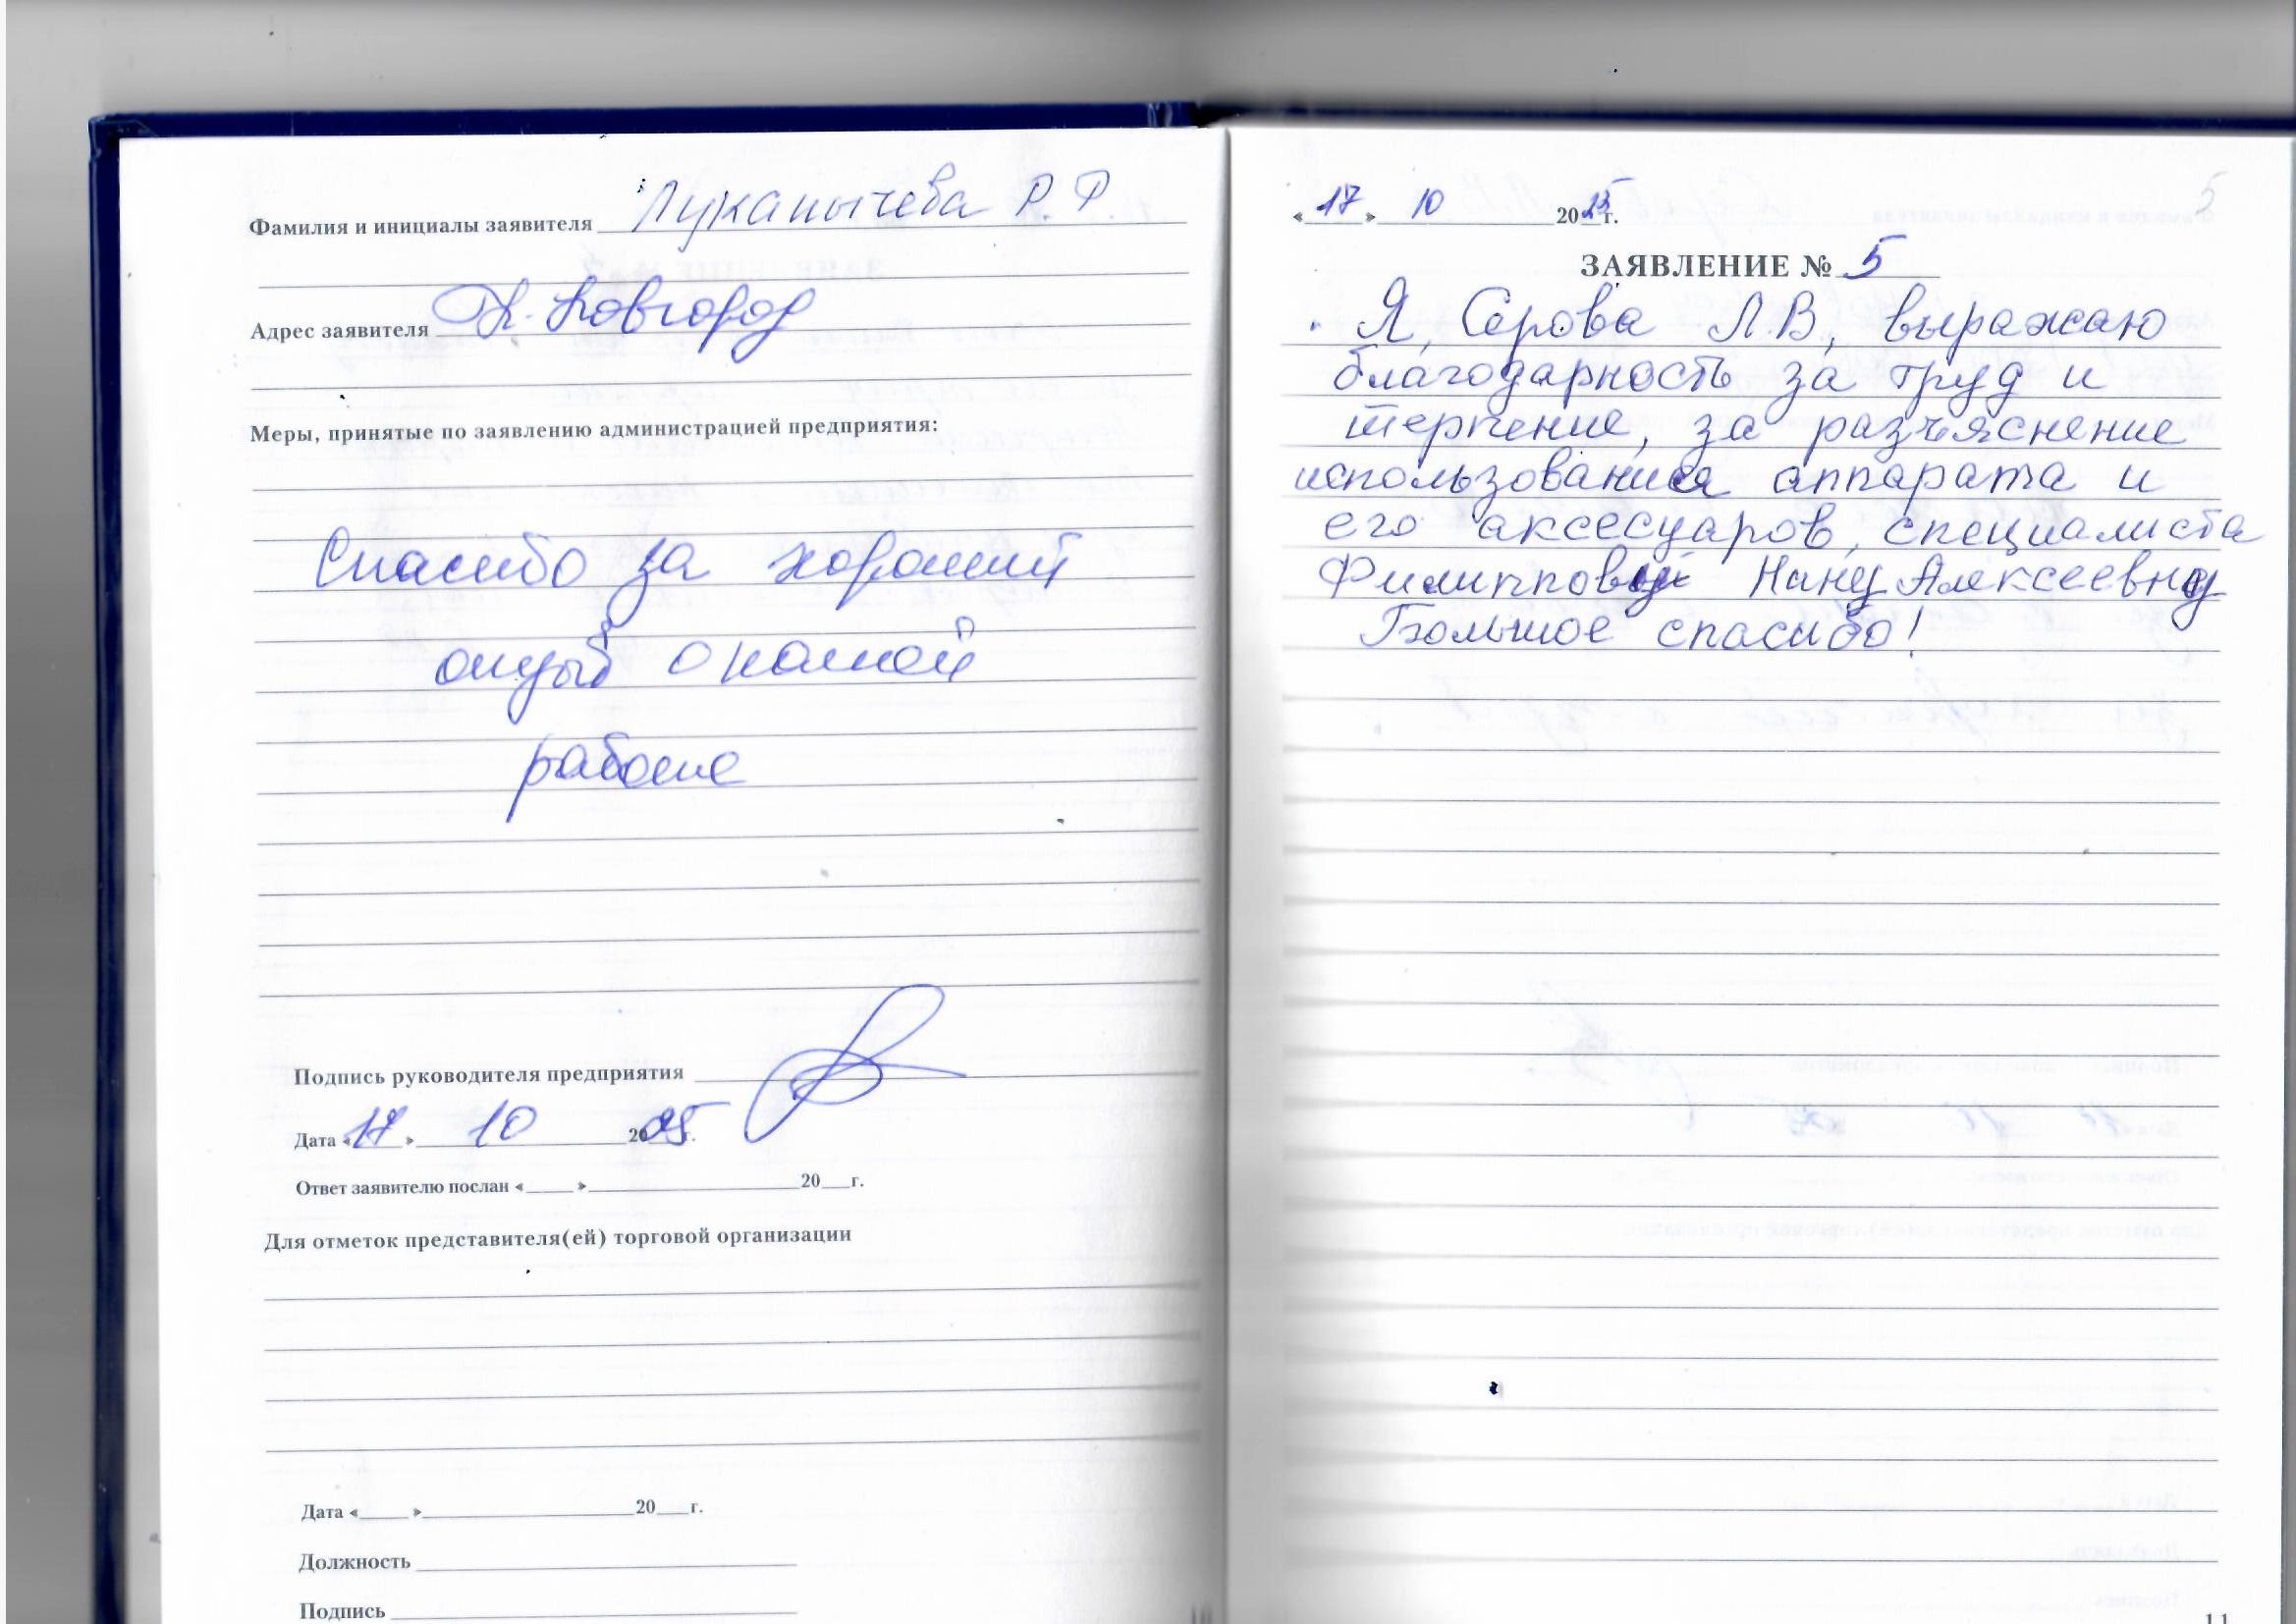 Фамилия и инициалы заявителя Луканычева Р. Р
Адрес заявителя Н. Новгород
Меры, принятые по заявлению администрацией предприятия:
Спасибо за хороший
отзыв о нашей
работе
Подпись руководителя предприятия
Дата «17» 10 2025 г.
Ответ заявителю послан «____» ____ 20__г.
Для отметок представителя(ей) торговой организации
Дата «____» ____ 20__г.
Должность
Подпись
5
«17» 10 2025г.
ЗАЯВЛЕНИЕ № 5
Я, Серова Л.В, выражаю
благодарность за труд и
терпение, за разъяснение
использования аппарата и
его аксесуаров, специалиста
Филиппову Нану Алексеевну
Большое спасибо!
11